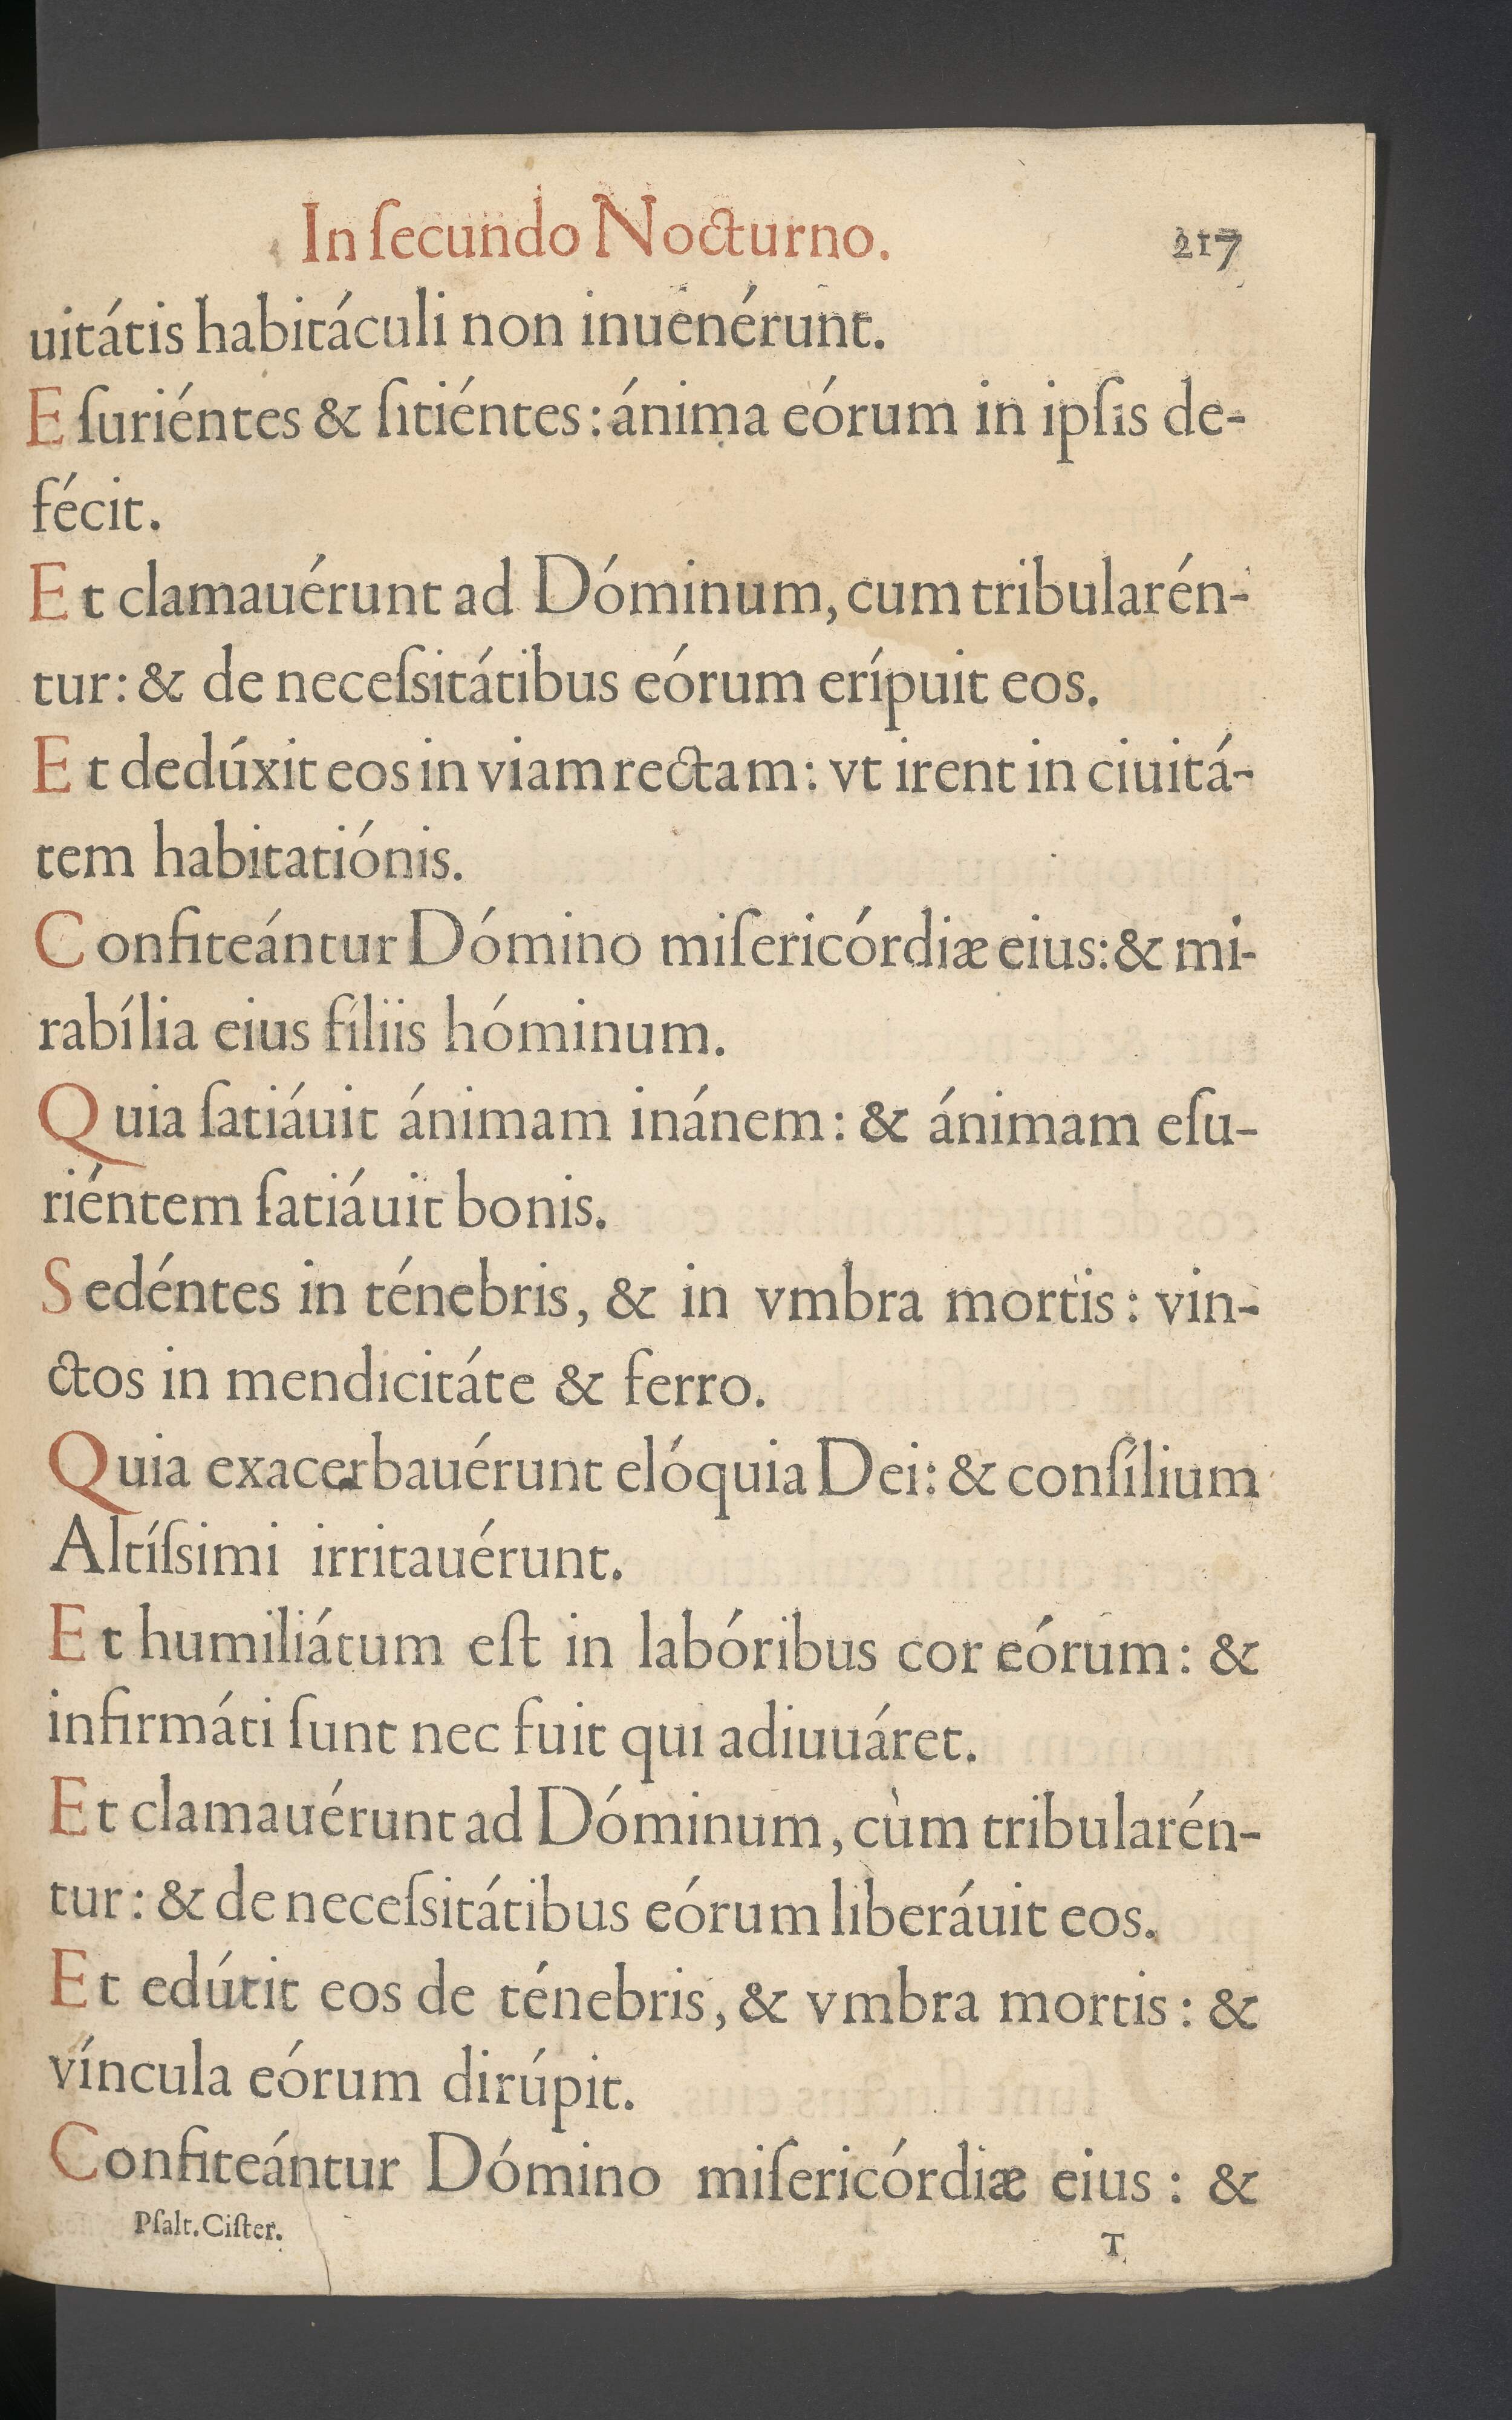 In ſecundo Nocturno. 217
uitátis habitáculi non inuenérunt.
Eſuriéntes & ſitiéntes: ánima eórum in ipſis de-
fécit.
Et clamauérunt ad Dóminum, cum tribularén-
tur: & de neceſsitátibus eórum erípuit eos.
Et dedúxit eos in viam rectam: vt irent in ciuitá-
tem habitatiónis.
Confiteántur Dómino miſericórdiæ eius: & mi-
rabília eius fíliis hóminum.
Quia ſatiáuit ánimam inánem: & ánimam eſu-
riéntem ſatiáuit bonis.
Sedéntes in ténebris, & in vmbra mortis: vin-
ctos in mendicitáte & ferro.
Quia exacerbauérunt elóquia Dei: & conſílium
Altíſsimi irritauérunt.
Et humiliátum eſt in labóribus cor eórum: &
infirmáti ſunt nec fuit qui adiuuáret.
Et clamauérunt ad Dóminum, cùm tribularén-
tur: & de neceſsitátibus eórum liberáuit eos.
Et edútit eos de ténebris, & vmbra mortis: &
víncula eórum dirúpit.
Confiteántur Dómino miſericórdiæ eius: &
Pſalt. Ciſter. T